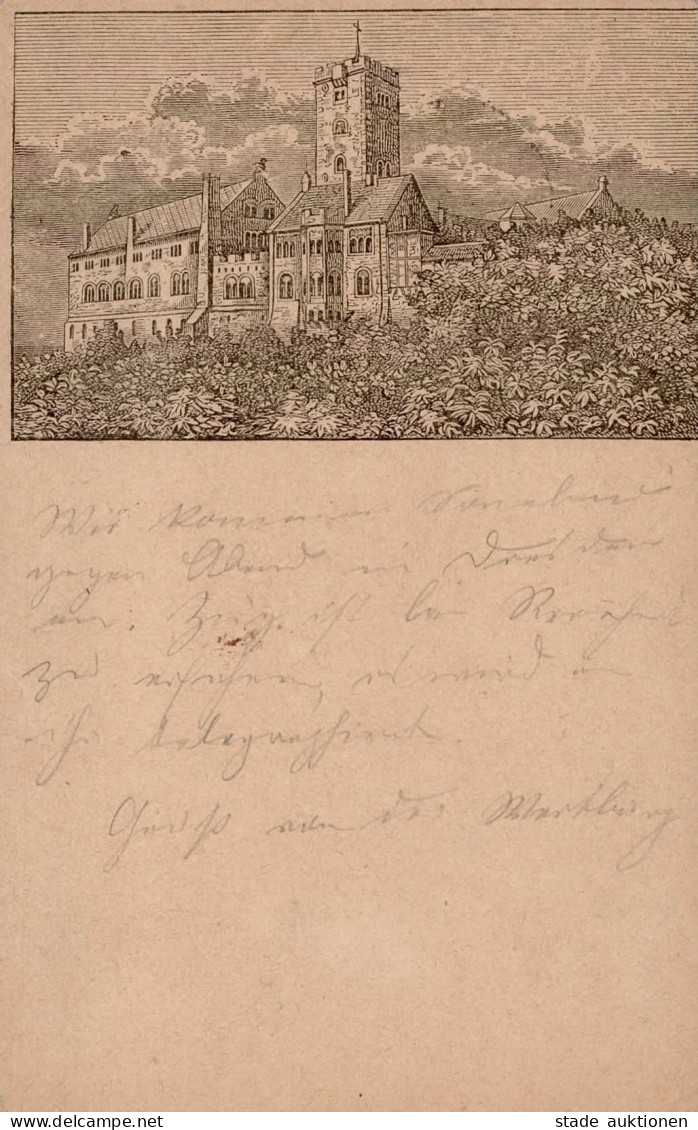 Wir kommen Sonnabend
gegen Abend in Dresden
an. Zug ist bei
zu erfahren, es wird an
ihn telegraphiert.
Gruß von der Wartburg
www.delcampe.net stade auktionen